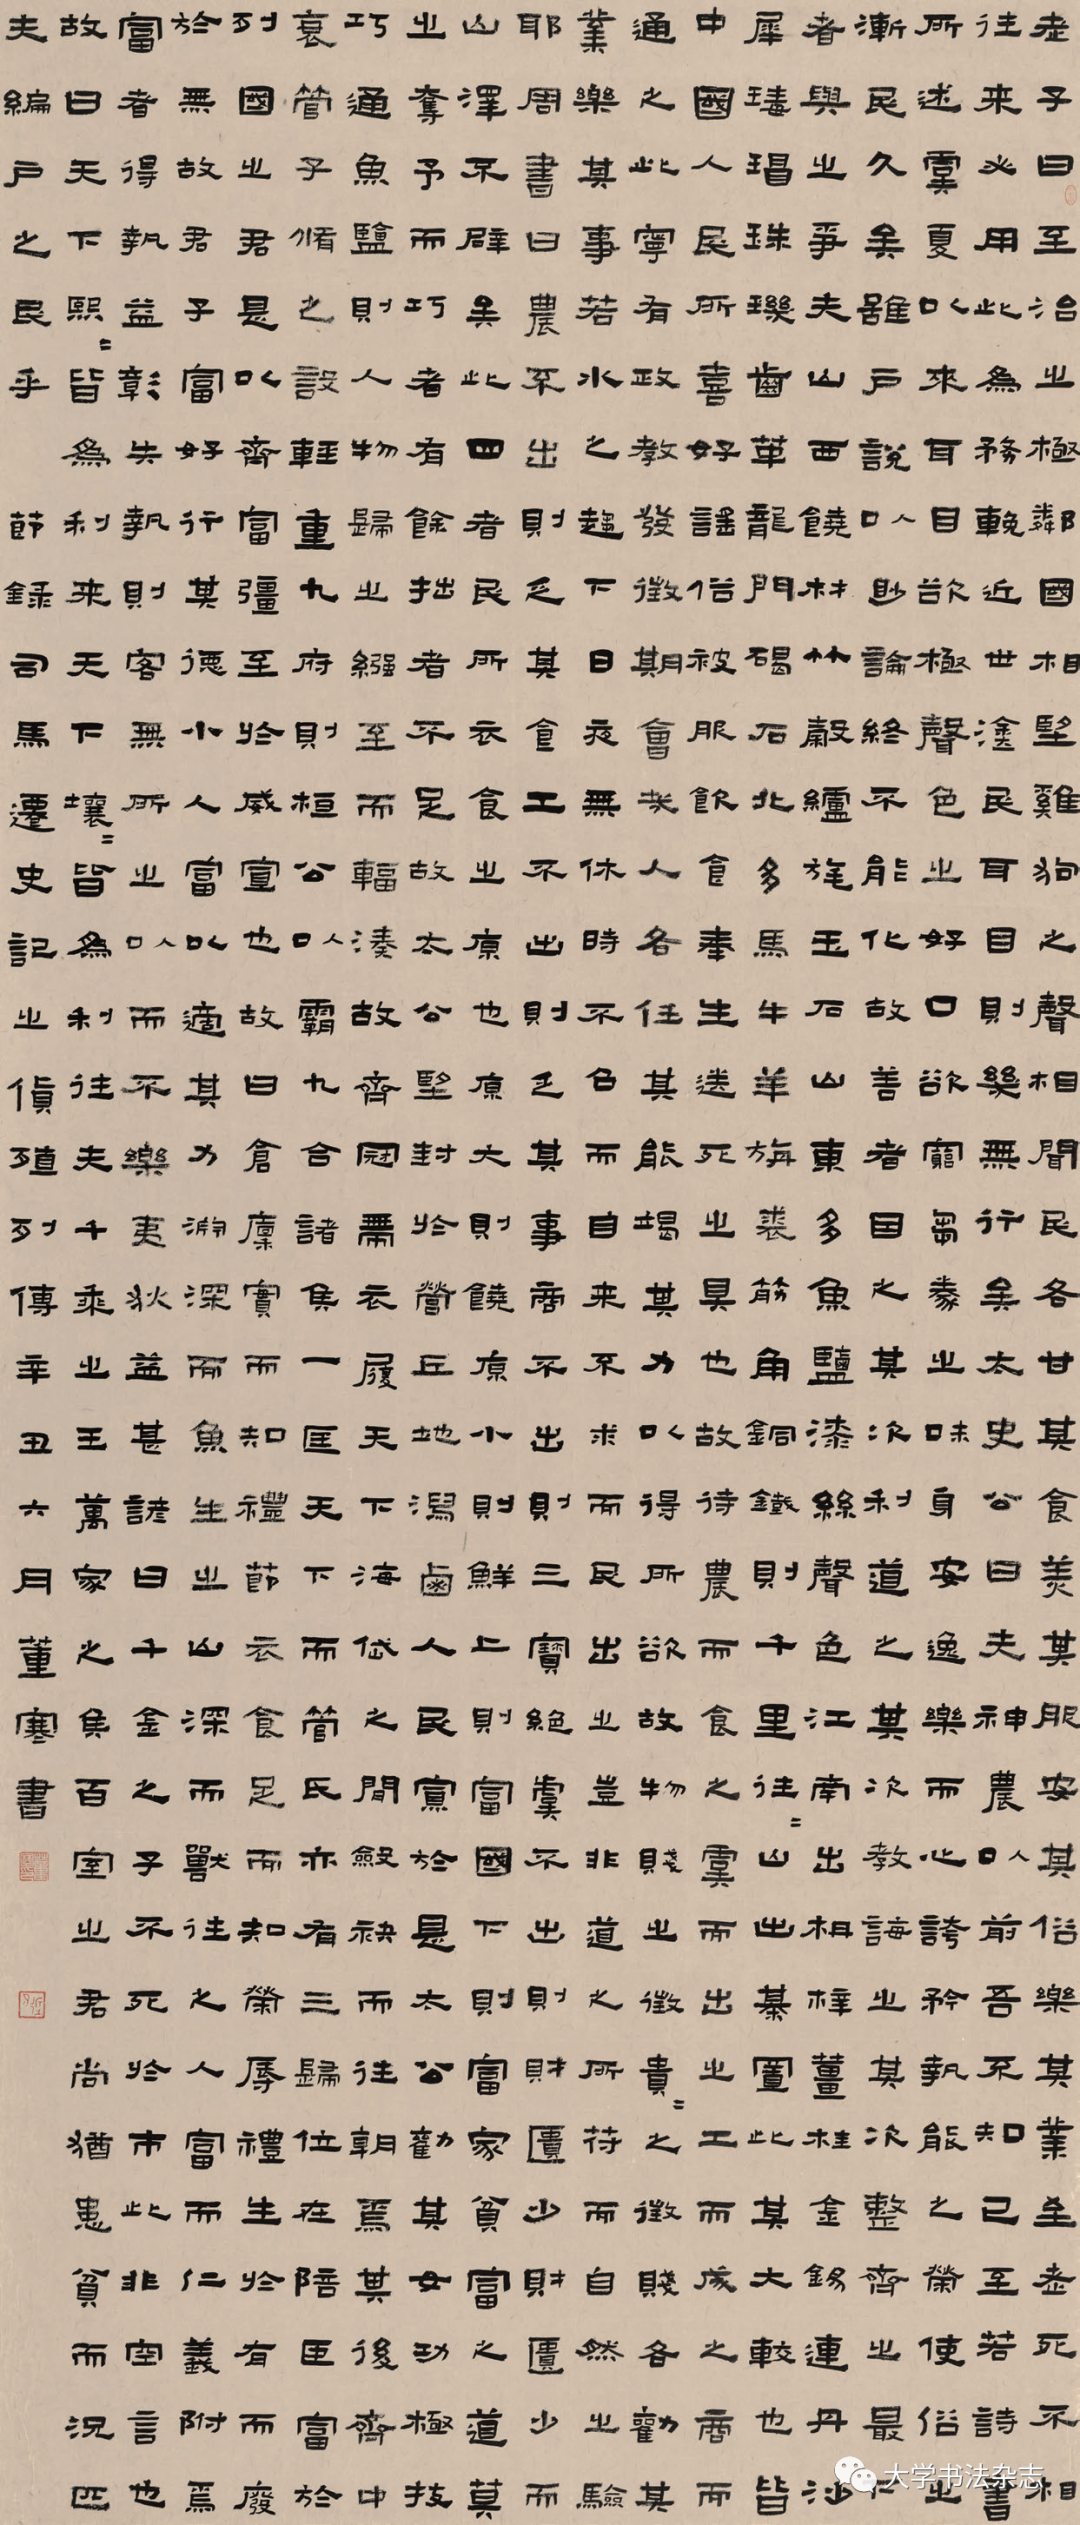 老子曰至治之極鄰國相望雞狗之聲相聞民各甘其食美其服安其俗樂其業至老死不相
往來必用此為務輓近世塗民耳目則幾無行矣太史公曰夫神農以前吾不知已至若詩書
所述虞夏以來耳目欲極聲色之好口欲窮芻豢之味身安逸樂而心誇矜埶能之榮使俗之
漸民久矣雖戶說以眇論終不能化故善者因之其次利道之其次教誨之其次整齊之最下
者與之爭夫山西饒材竹穀纑旄玉石山東多魚鹽漆絲聲色江南出枏梓薑桂金錫連丹沙
犀瑇瑁珠璣齒革龍門碣石北多馬牛羊旃裘筋角銅鐵則千里往〻山出棊置此其大較也皆
中國人民所喜好謠俗被服飲食奉生送死之具也故待農而食之虞而出之工而成之商而
通之此寧有政教發徵期會哉人各任其能竭其力以得所欲故物賤之徵貴〻之徵賤各勸其
業樂其事若水之趨下日夜無休時不召而自來不求而民出之豈非道之所符而自然之驗
耶周書曰農不出則乏其食工不出則乏其事商不出則三寶絕虞不出則財匱少財匱少而
山澤不辟矣此四者民所衣食之原也原大則饒原小則鮮上則富國下則富家貧富之道莫
之奪予而巧者有餘拙者不足故太公望封於營丘地潟鹵人民寡於是太公勸其女功極技
巧通魚鹽則人物歸之繦至而輻湊故齊冠帶衣履天下海岱之閒斂袂而往朝焉其後齊中
衰管子脩之設輕重九府則桓公以霸九合諸侯一匡天下而管氏亦有三歸位在陪臣富於
列國之君是以齊富彊至於威宣也故曰倉廩實而知禮節衣食足而知榮辱禮生於有而廢
於無故君子富好行其德小人富以適其力淵深而魚生之山深而獸往之人富而仁義附焉
富者得埶益彰失埶則客無所之以而不樂夷狄益甚諺曰千金之子不死於市此非空言也
故曰天下熙〻皆為利來天下壤〻皆為利往夫千乘之王萬家之侯百室之君尚猶患貧而況匹
夫編戶之民乎 節錄司馬遷史記之貨殖列傳辛丑六月董寒書
大学书法杂志